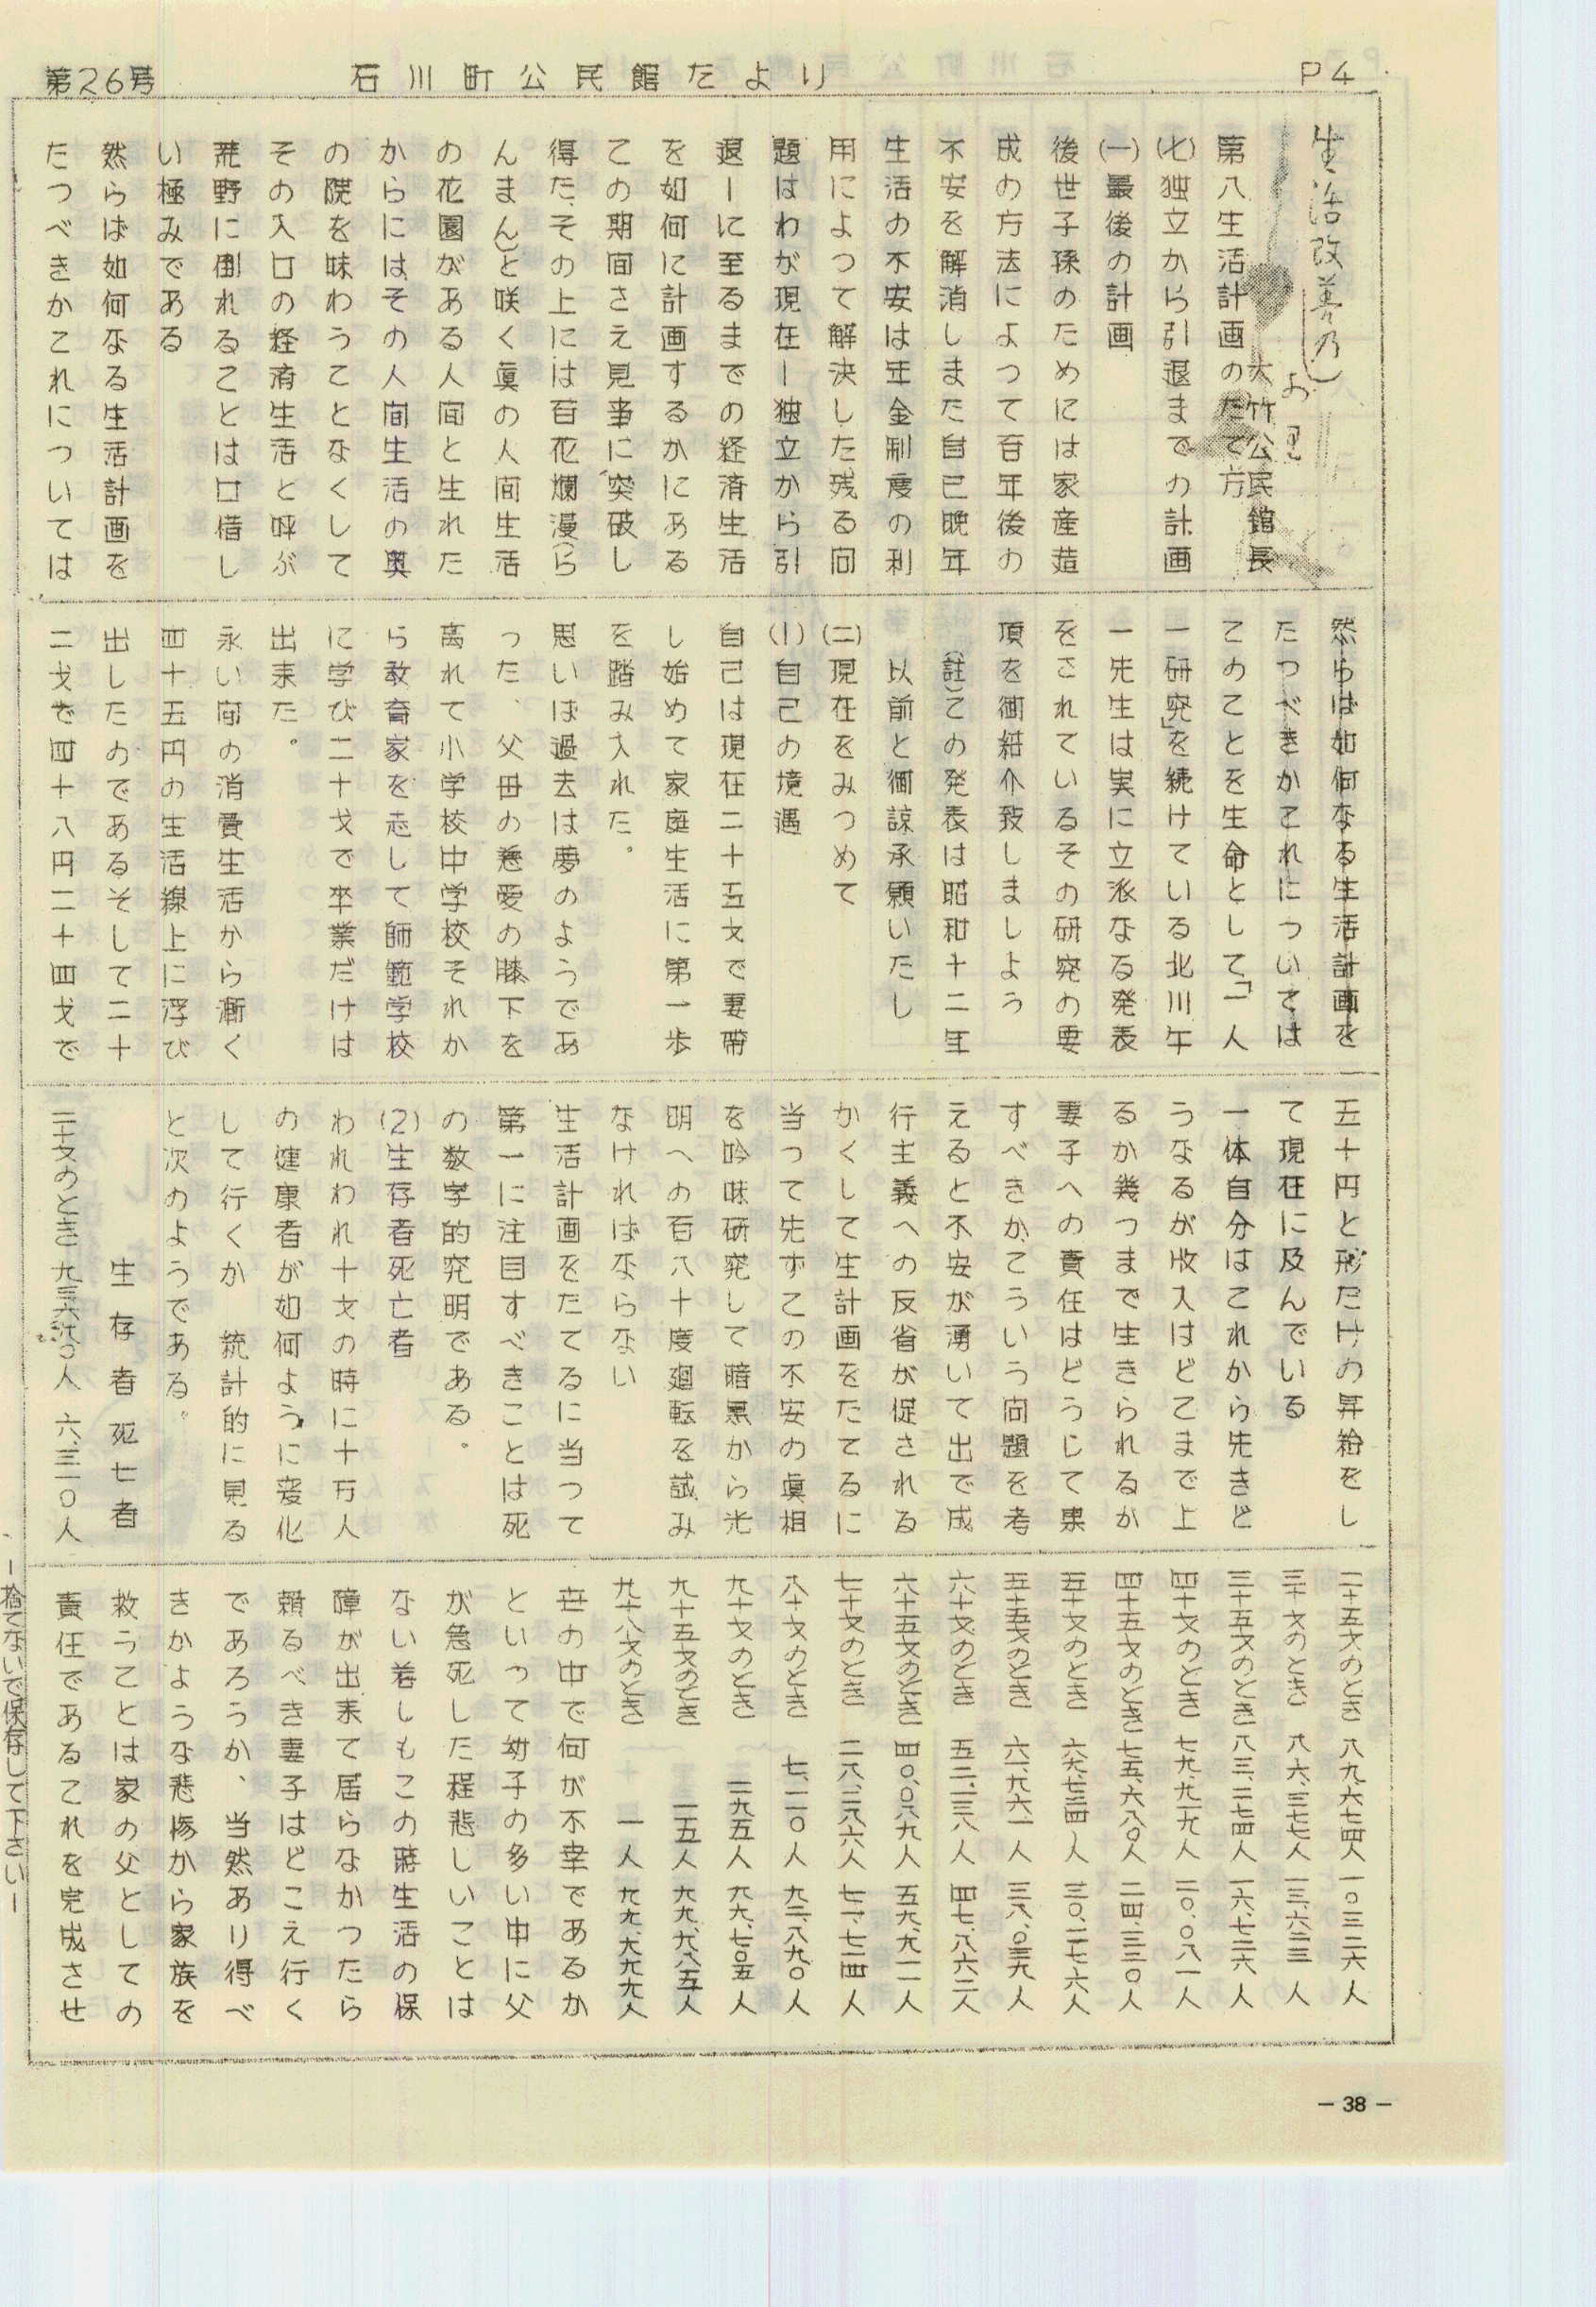 第26号
石川町公民館たより
P4
生活改善の
大竹公民館長
第八生活計画のたて方
(七)独立から引退までの計画
(一)最後の計画
後世子孫のためには家産造
成の方法によって百年後の
不安を解消しまた自己晩年
生活の不安は年金制度の利
用によつて解決した残る問
題はわが現在ー独立から引
退ーに至るまでの経済生活
を如何に計画するかにある
この期間さえ見事に突破し
得たその上には百花爛漫(ら
んまん)と咲く眞の人間生活
の花園がある人間と生れた
からにはその人間生活の奥
の院を味わうことなくして
その入口の経済生活と呼が
荒野に倒れることは口惜し
い極みである
然らば如何なる生活計画を
たつべきかこれについては
然らば如何なる生活計画を
たつべきかこれについては
このことを生命として「一人
一研究」を続けている北川午
一先生は実に立派なる発表
をされているその研究の要
項を御紹介致しましよう
(註)この発表は昭和十二年
以前と御諒承願いたし
(二)現在をみつめて
(1)自己の境遇
自己は現在二十五才で妻帯
し始めて家庭生活に第一歩
を踏み入れた。
思いば過去は夢のようであ
った、父母の慈愛の膝下を
离れて小学校中学校それか
ら教育家を志して師範学校
に学び二十才で卒業だけは
出来た。
永い間の消費生活から漸く
四十五円の生活線上に浮び
出したのであるそして二十
二才で四十八円二十四才で
五十円と形だけの昇給をし
て現在に及んでいる
一体自分はこれから先きど
うなるが収入はどこまで上
るか幾つまで生きられるが
妻子への責任はどうじて果
すべきか、こういう問題を考
えると不安が湧いて出で成
行主義への反省が促される
かくして生計画をたてるに
当って先ずこの不安の眞相
を吟味研究して暗黒から光
明への百八十度廻転を試み
なければならない
生活計画をたてるに当って
第一に注目すべきことは死
の数学的究明である。
(2)生存者死亡者
われわれ十才の時に十万人
の健康者が如何ように変化
して行くか 統計的に見る
と次のようである。
生存者 死亡者
二十才のとき 九三、六九〇人 六、三一〇人
二十五才のとき 八九、六七四人 一〇、三二六人
三十才のとき 八六、三七七人 一三、六二三人
三十五才のとき 八三、二七四人 一六、七二六人
四十才のとき 七九、九一九人 二〇、〇八一人
四十五才のとき 七五、六八〇人 二四、三二〇人
五十才のとき 六九、七二四人 三〇、二七六人
五十五才のとき 六一、九六一人 三八、〇三九人
六十才のとき 五二、一三八人 四七、八六二人
六十五才のとき 四〇、〇八九人 五九、九一一人
七十才のとき 二八、二八六人 七一、七一四人
八十才のとき 七、一一〇人 九二、八九〇人
九十才のとき 二九五人 九九、七〇五人
九十五才のとき 一五人 九九、九八五人
九十八才のとき 一人 九九、九九九人
世の中で何が不幸であるか
といって幼子の多い中に父
が急死した程悲しいことは
ない若しもこの際生活の保
障が出来て居らなかつたら
頼るべき妻子はどこえ行く
であろうか、当然あり得べ
きかような悲惨から家族を
救うことは家の父としての
責任であるこれを完成させ
ー捨てないで保存して下さいー
－38－